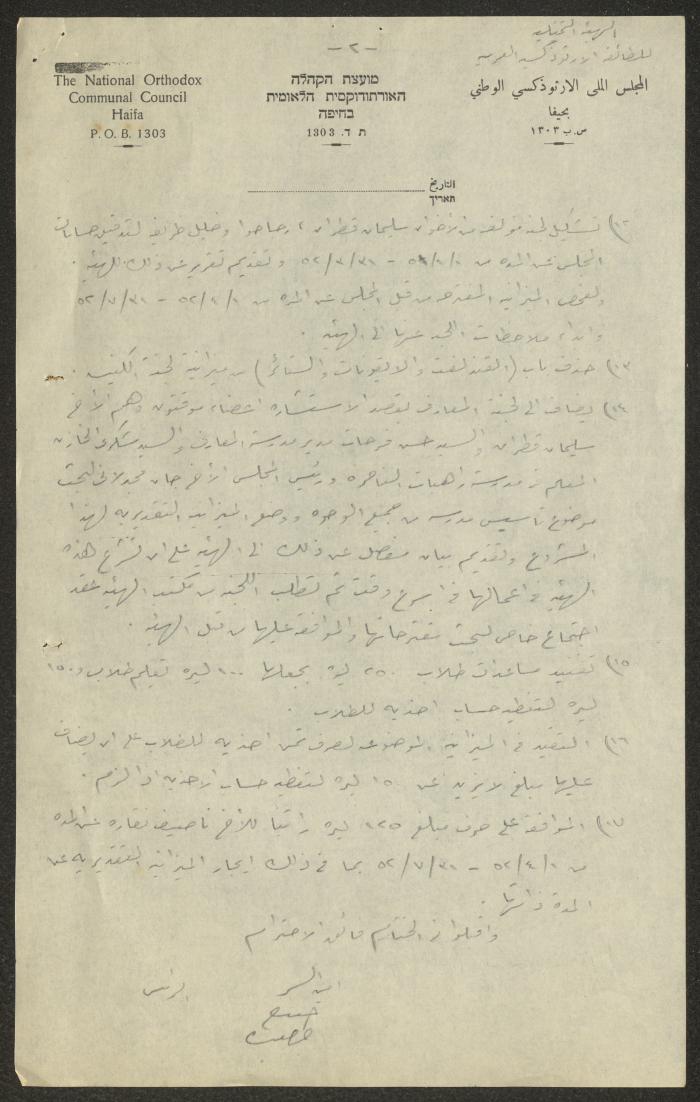 - ٢ -
الهيئة التمثيلية
للطائفة الارثوذكسية العربية
The National Orthodox
Communal Council
Haifa
P. O. B. 1303
מועצת הקהלה
האורתודוקסית הלאומית
בחיפה
ת ד. 1303
المجلس الملي الارثوذكسي الوطني
بحيفا
ص.ب ١٣٠٣
التاريخ
תאריך
١٢) تشكيل لجنة مؤلفة من الأخوان سليمان قطران، وخليل لتدقيق حسابات
المجلس عن المدة من - ٥٢/٣/٣١ وتقديم تقرير عن ذلك للهيئة .
ولفحص الميزانية المقترحة من قبل المجلس عن المدة من ٥٢/٤/١ - ٥٢/٧/٣١
وابداء ملاحظات اللجنة عنها الى الهيئة .
١٣) حذف باب (القندلفت والايقونات والستائر) من ميزانية لجنة الكنيسة .
١٤) يضاف الى لجنة المعارف بقصد الاستشارة اعضاء موقتون وهم الأخ
سليمان قطران والسيد حسن فرحات مدير مدرسة المعارف والسيد شكري الخازن
المعلم في مدرسة راهبات الناصرة ورئيس المجلس الأخ جان مجدلاني لبحث
موضوع تأسيس مدرسة من جميع الوجوه ووضع الميزانية التقديرية لهذا
المشروع وتقديم بيان مفصل عن ذلك الى الهيئة على ان تشرع هذه
الهيئة في اعمالها في اسرع وقت ثم تطلب اللجنة من مكتب الهيئة عقد
اجتماع خاص لبحث مقترحاتها والموافقة عليها من قبل الهيئة .
١٥) مساعدات طلاب ٢٥٠ ليرة بجعلها ١٠٠ ليرة تعليم طلاب و١٥٠
ليرة لتغطية حساب احذية للطلاب .
١٦) التقيد في الميزانية الموضوعة لصرف ثمن احذية للطلاب على ان يضاف
عليها مبلغ لا يزيد عن ١٥٠ ليرة لتغطية حساب الاحذية اذا لزم .
١٧) الموافقة على صرف مبلغ ١٢٥ ليرة راتبا للأخ ناصيف نقارة عن المدة
من ٥٢/٤/١ - ٥٢/٧/٣١ بما في ذلك ايجار الميزانية التقديرية عن
المدة ذاتها .
واقبلوا في الختام فائق الاحترام
امين السر
الرئيس